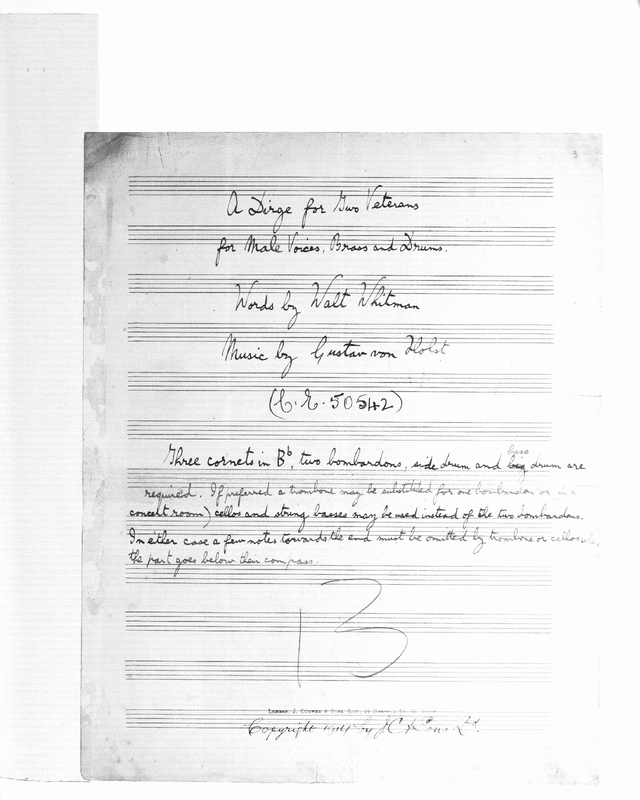 3
A Dirge for Two Veterans
for Male Voices, Brass and Drums.
Words by Walt Whitman
Music by Gustav von Holst
(C.E. 50542)
bass
Three cornets in B♭, two bombardons, side drum and big drum are
required. If preferred a trombone may be substituted for one bombardon or in a
concert room) cellos and string basses may be used instead of the two bombardons.
In either case a few notes towards the end must be omitted by trombone or cellos
the part goes below their compass.
13
London: J. Curwen & Sons Ltd.,
Copyright 1914 by J.C. & Sons Ld.